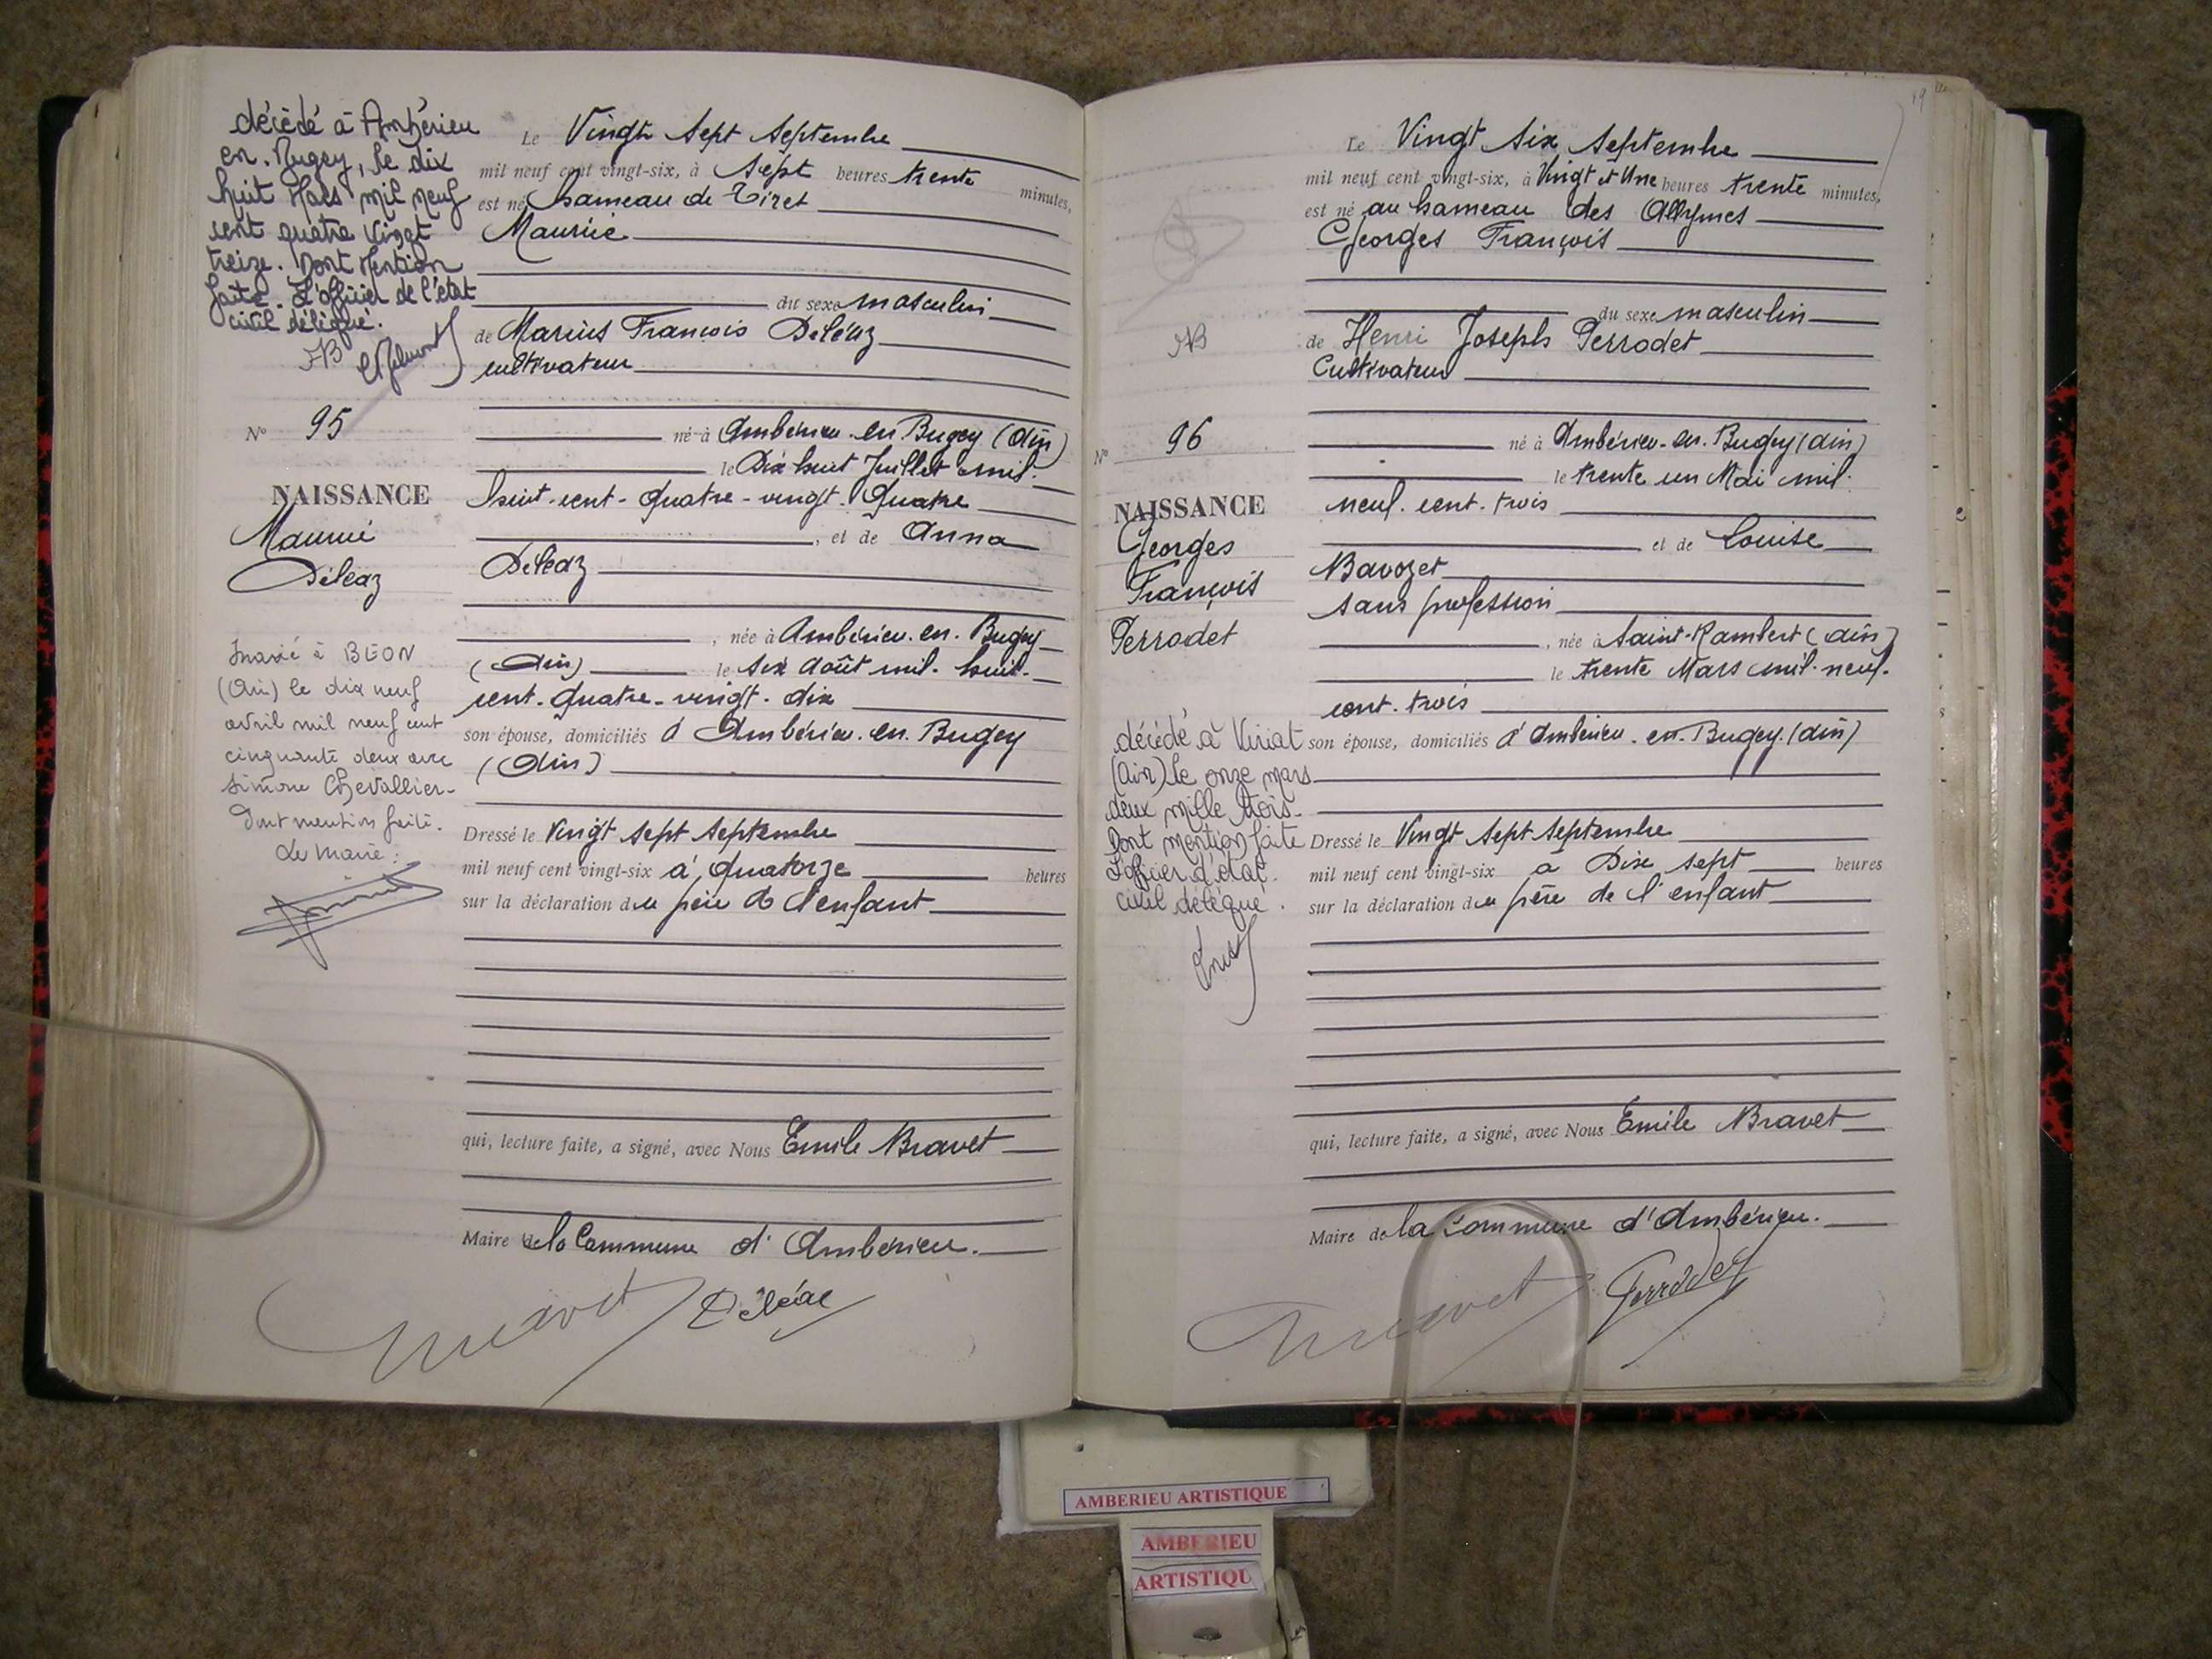 décédé à Ambérieu
en. Bugey, le dix
huit Mars mil neuf
cent quatre vingt
treize. Dont Mention
faite. L'officier de l'état
civil délégué.
N° 95
NAISSANCE
Maurice
Déléaz
marié à BEON
(Ain) le dix neuf
avril mil neuf cent
cinquante deux avec
Simone Chevallier-
Dont mention faite.
Le Maire:
Le Vingt sept Septembre
mil neuf cent vingt-six, à Sept heures trente minutes,
est né hameau de Tiret
Maurice
du sexe masculin
de Marius François Déléaz
cultivateur
né à Ambérieu-en-Bugey (Ain)
le Dix huit Juillet mil-
huit-cent-quatre-vingt-quatre
, et de Anna
Déléaz
, née à Ambérieu-en-Bugey
(Ain) le six août mil-huit-
cent-quatre-vingt-dix
son épouse, domiciliés à Ambérieu-en-Bugey
(Ain)
Dressé le Vingt sept Septembre
mil neuf cent vingt-six à quatorze heures
sur la déclaration du père de l'enfant
qui, lecture faite, a signé, avec Nous Emile Bravet
Maire de la Commune d'Ambérieu.
Bravet Déléaz
N° 96
NAISSANCE
Georges
François
Perrodet
décédé à Viriat
(Ain) le onze mars
deux mille trois.
Dont mention faite
L'officier d'état
civil délégué.
Le Vingt six Septembre
mil neuf cent vingt-six, à Vingt et Une heures trente minutes,
est né au hameau des Allymes
Georges François
du sexe masculin
de Henri Joseph Perrodet
Cultivateur
né à Ambérieu-en-Bugey (Ain)
le trente un Mai mil-
neuf-cent-trois
et de Louise
Bavozet
sans profession
, née à Saint-Rambert (Ain)
le trente Mars mil-neuf-
cent-trois
son épouse, domiciliés à Ambérieu-en-Bugey (Ain)
Dressé le Vingt sept Septembre
mil neuf cent vingt-six à Dix sept heures
sur la déclaration du père de l'enfant
qui, lecture faite, a signé, avec Nous Emile Bravet
Maire de la Commune d'Ambérieu.
Bravet Perrodet
AMBERIEU ARTISTIQUE
AMBERIEU
ARTISTIQU